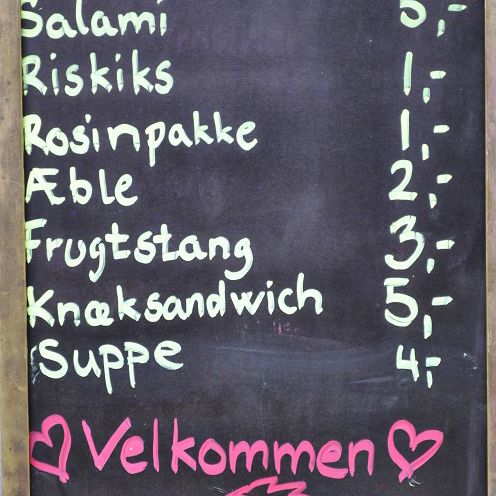 Salami 5,-
Riskiks 1,-
Rosinpakke 1,-
Æble 2,-
Frugtstang 3,-
Knæksandwich 5,-
Suppe 4,-
Velkommen